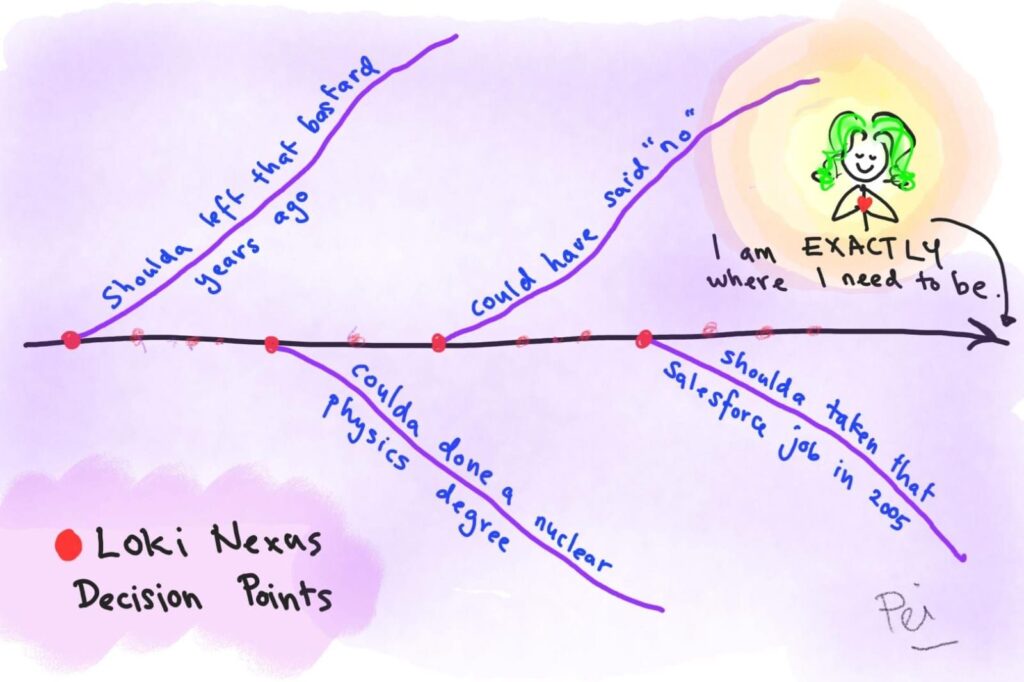 Shoulda left that bastard
years ago
could have said "no"
I am EXACTLY
where I need to be.
coulda done a nuclear
physics degree
shoulda taken that
Salesforce job in 2005
Loki Nexas
Decision Points
Pei